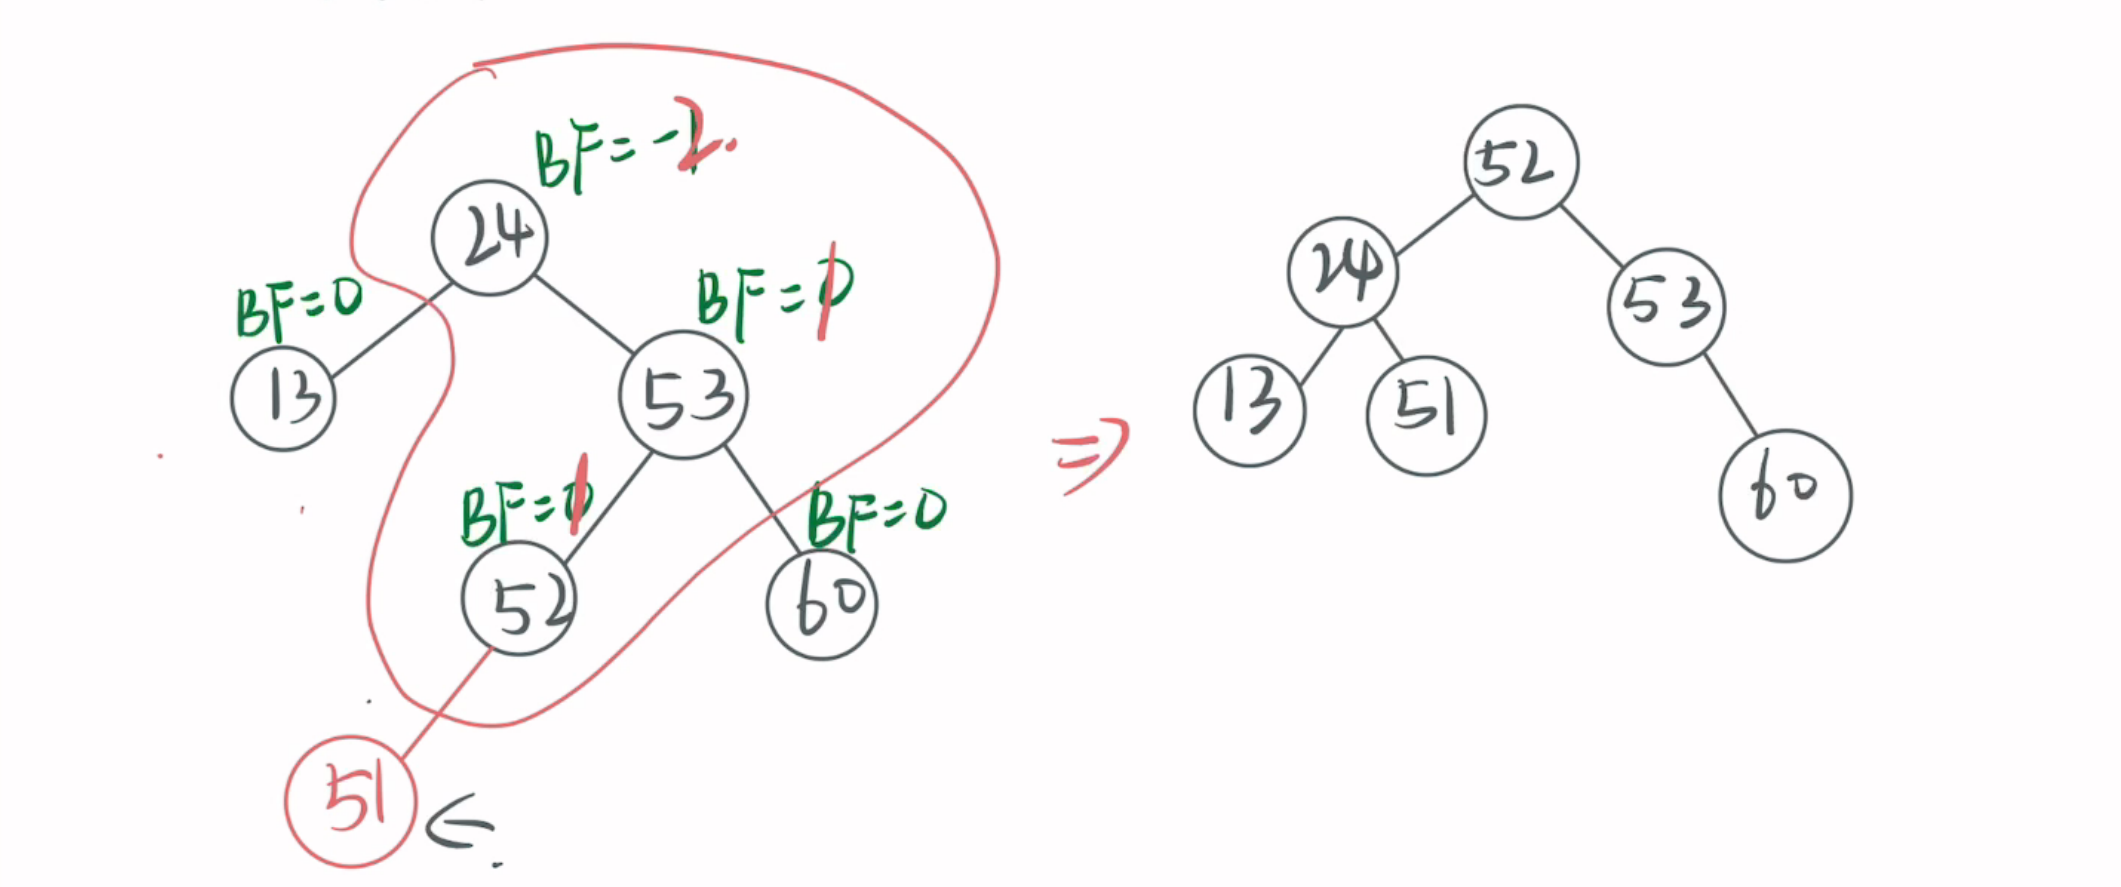 BF=-2.
24
BF=0
13
BF=1
53
BF=1
52
BF=0
60
51
⇒
52
24
53
13
51
60